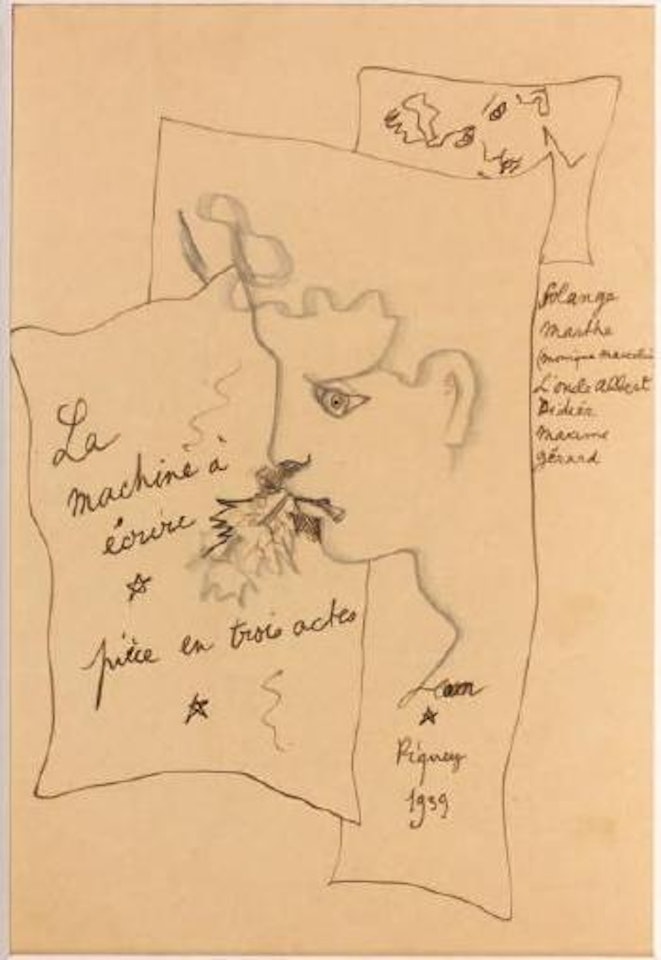 La
machine à
écrire
pièce en trois actes
Jean
Piquey
1939
Solange
Marthe
(Monique Marcelin
L'oncle Albert
Didier
Maxime
Gérard